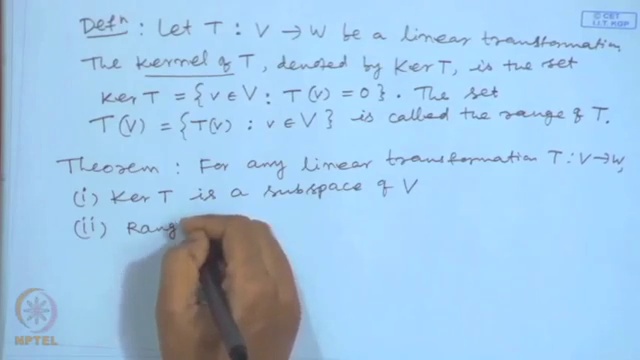 © CET
I.I.T. KGP
Defⁿ : Let T : V → W be a linear transformation
The Kernel of T, denoted by Ker T, is the set
Ker T = {v ∈ V : T(v) = 0}. The set
T(V) = {T(v) : v ∈ V} is called the range of T.
Theorem : For any linear transformation T : V → W,
(i) Ker T is a subspace of V
(ii) Rang
NPTEL